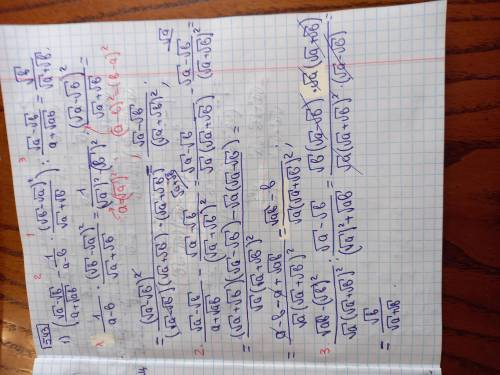 543
1) ((√a-√b)/(a+√ab) - 1/(a-b) · (√b-√a)²/(√a+√b)) : (√a-√b)/(a+√ab) = √b/(√a+√b).
1. 1/(a-b) · (√b-√a)²/(√a+√b) = 1/((√a)²-(√b)²) · (√a-√b)²/(√a+√b) =
a=(√a)²; (a-b)²=(b-a)²
= (√a-√b)²/((√a-√b)(√a+√b)·(√a+√b)) = (√a-√b)/(√a+√b)²;
2. (√a-√b)/(a+√ab) - (√a-√b)/(√a+√b)² = (√a-√b)/(√a(√a+√b)) - (√a-√b)/(√a+√b)² =
= ((√a+√b)(√a-√b)-√a(√a-√b))/(√a(√a+√b)²) =
= (a-b-a+√ab)/(√a(√a+√b)²) = (√ab-b)/(√a(√a+√b)²);
3. (√ab-(√b)²)/(√a(√a+√b)²) : (√a-√b)/((√a)²+√ab) = (√b(√a-√b)·√a(√a+√b))/(√a(√a+√b)²·(√a-√b))
= √b/(√a+√b).